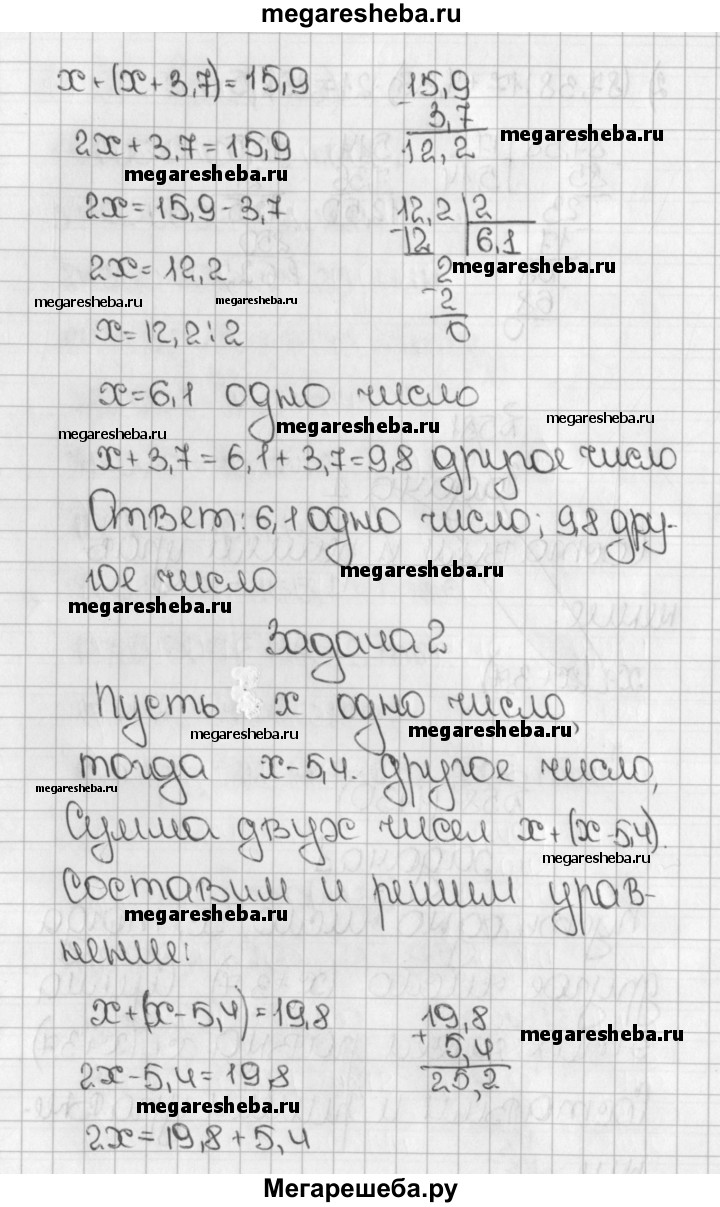 megaresheba.ru
x+(x+3,7)=15,9
15,9
- 3,7
12,2
megaresheba.ru
2x+3,7=15,9
megaresheba.ru
2x=15,9-3,7
12,2 | 2
-12 | 6,1
2
-2
0
megaresheba.ru
2x=12,2
megaresheba.ru
megaresheba.ru
x=12,2:2
x=6,1 одно число
megaresheba.ru
megaresheba.ru
megaresheba.ru
x+3,7=6,1+3,7=9,8 другое число
Ответ: 6,1 одно число; 9,8 дру-
гое число
megaresheba.ru
megaresheba.ru
Задача 2
Пусть x одно число,
megaresheba.ru
megaresheba.ru
тогда x-5,4. другое число,
megaresheba.ru
Сумма двух чисел x+(x-5,4).
megaresheba.ru
Составим и решим урав-
megaresheba.ru
нение:
x+(x-5,4)=19,8
19,8
+ 5,4
25,2
megaresheba.ru
2x-5,4=19,8
megaresheba.ru
2x=19,8+5,4
Мегарешеба.ру